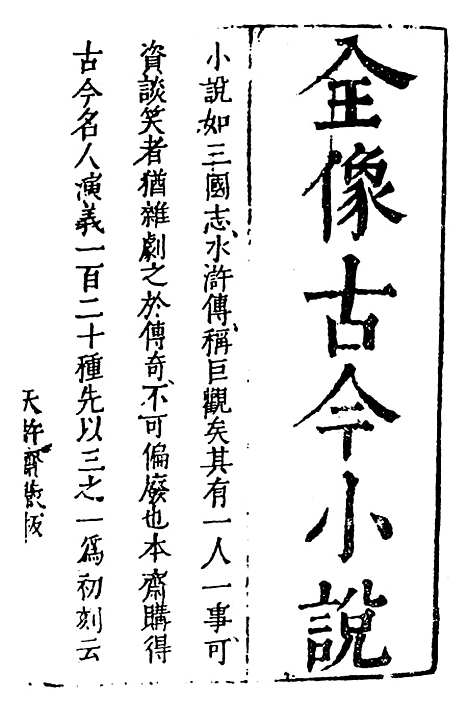 全像古今小說
小說如三國志、水滸傳、稱巨觀矣其有一人一事可
資談笑者猶雜劇之於傳奇、不可偏廢也本齋購得
古今名人演義一百二十種先以三之一爲初刻云
天許齋藏板